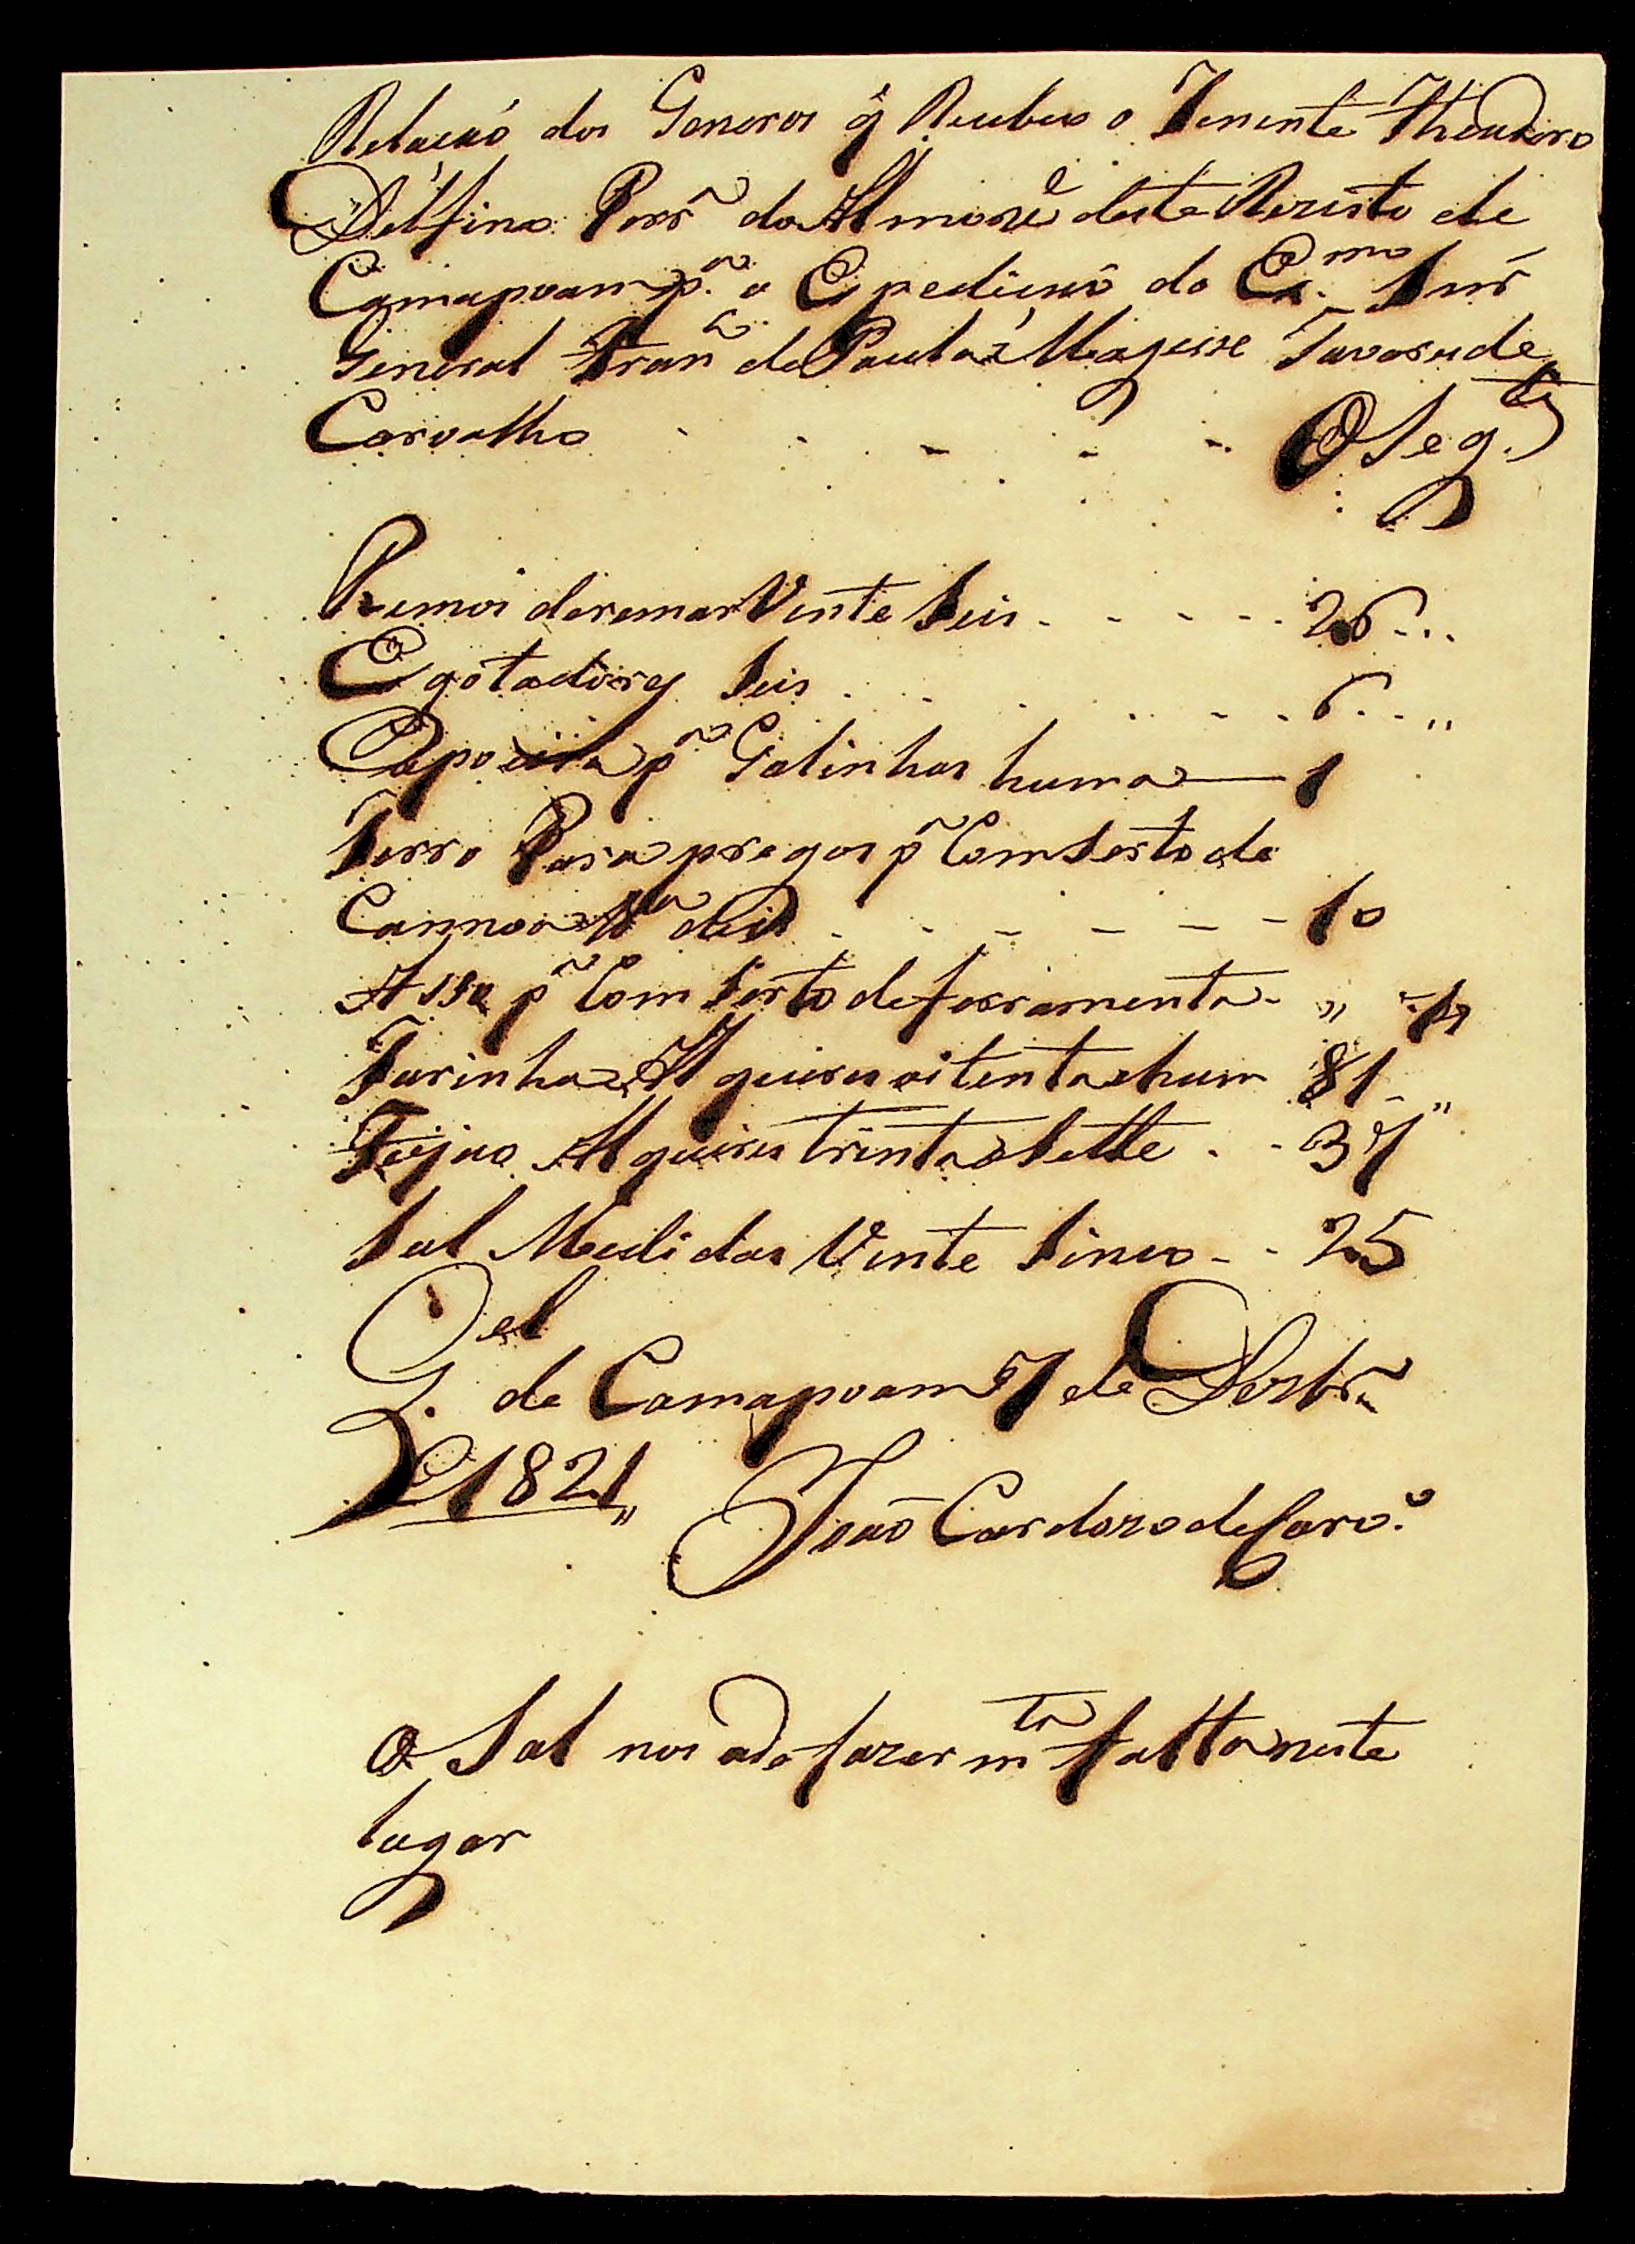 Relacaõ dos Generos q̃ Recebeo o Tenente Theodoro
Delfino Perr.ª do Almozẽ deste Rezisto de
Camapoam p.ª a Epedicaõ do Ex.mo Snr̃
General Fran.co de Paula Magesse Tavares de
Carvalho - - - - - O Seg.te
Remos de remar Vente Seis - - - - 26
Egotadores Seis - - - 6 "
Capoeira p.ª Galinhas huma — 1
Ferro Para pregos p.ª Com Serto de
Cannoa deis - - - - - 10
Asso p.ª Com Serto de ferramenta - "
Farinha Alqueires oitenta e hum 81 "
Feijao Alqueires trinta e Sette - - 37
Sal Medidas Vente Sinco - - 25
de Camapoam 7 de Dezbr.º
de 1821 "
Joaõ Cardozo de Carv.º
O Sal nos ade fazer m.ta faltta neste
lugar